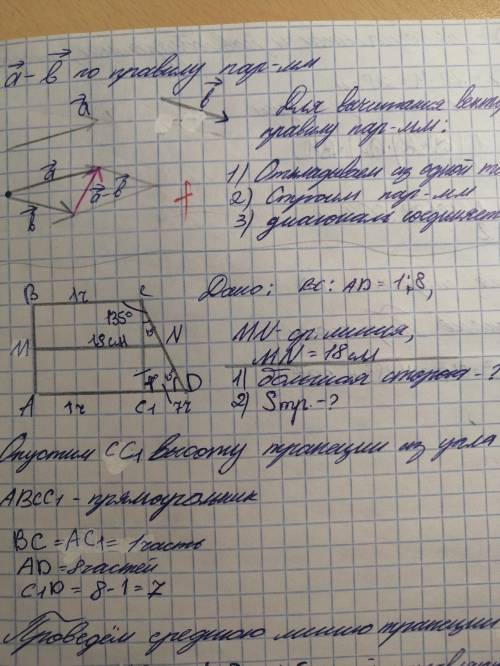 a - b по правилу пар-мм
a
b
Для вычитания
правилу пар-мм:
a
a - b
b
1) Откладываем из одной
2) Строим пар-мм
3) диагональ соединяет
B 1ч C
135°
M 18 см N
A 1ч C1 7ч D
Дано: BC : AD = 1:8,
MN - ср. линия,
MN = 18 см
1) большая сторона - ?
2) Sтр. - ?
Опустим CC1 высоту трапеции из угла
ABCC1 - прямоугольник
BC = AC1 = 1 часть
AD = 8 частей
C1D = 8 - 1 = 7
Проведём среднюю линию трапеции